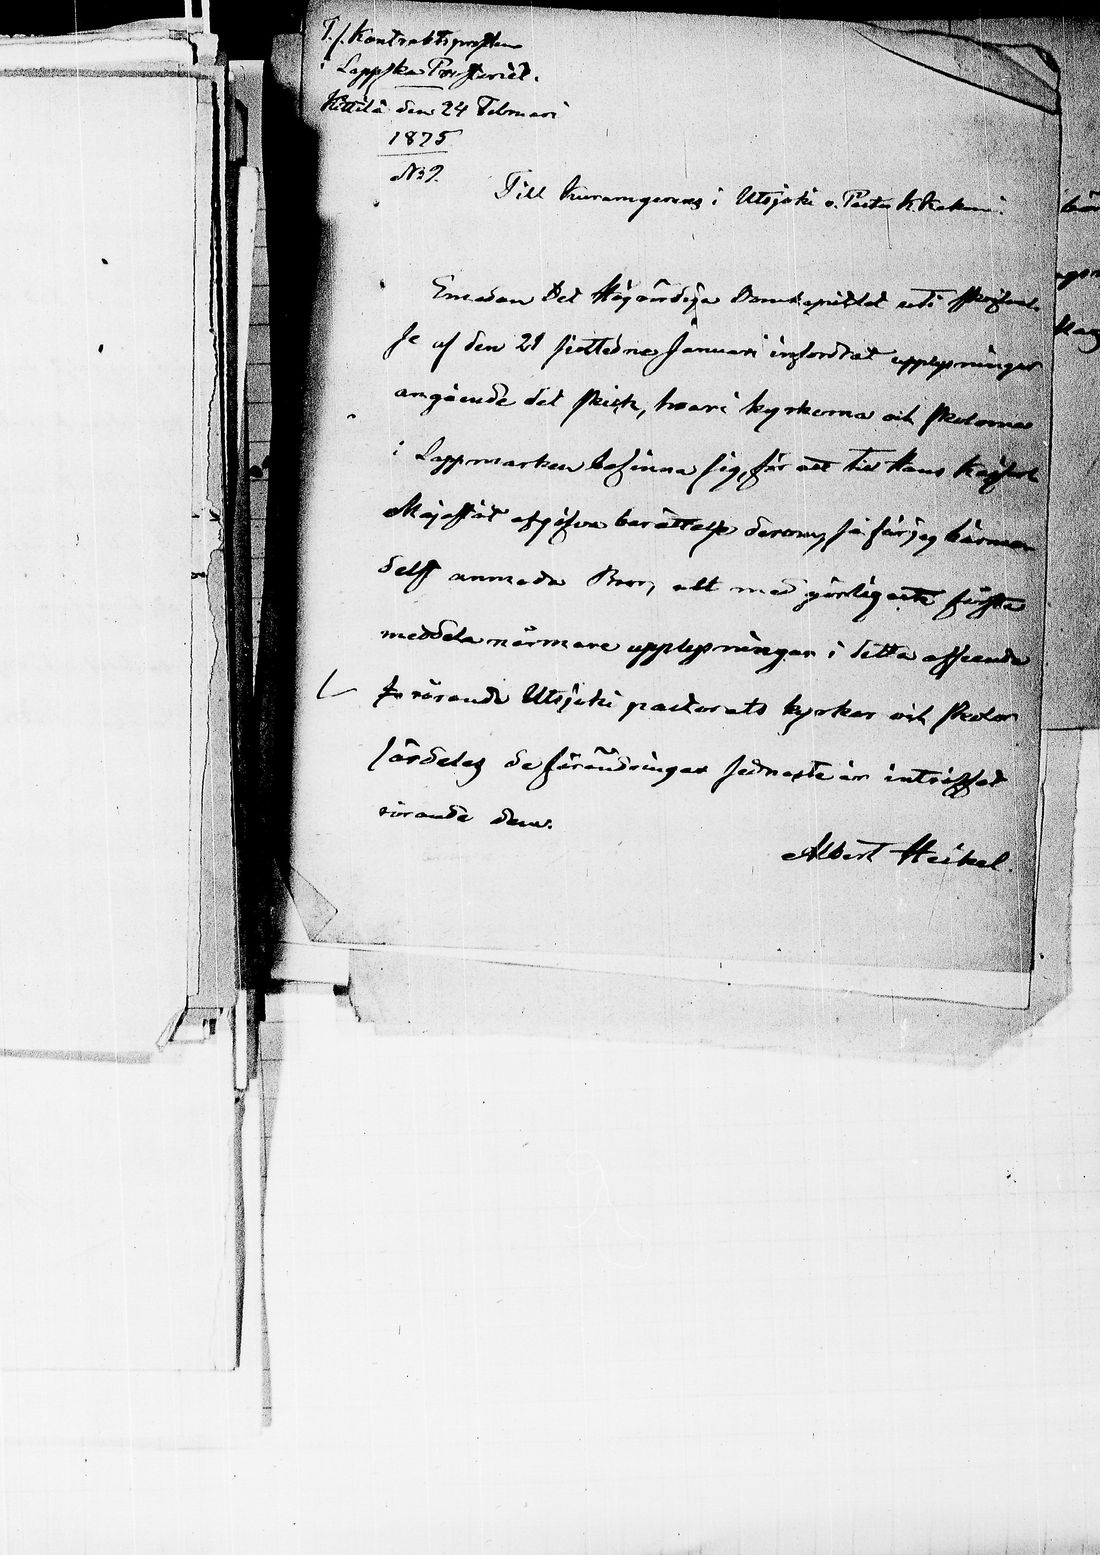 T. f. Kontraktsprosten
i Lappska Prosteriet.
Kittilä den 24 Februari
1875
No 9.
Till i Utsjoki
Emedan Det Högvördiga Domkapitlet uti skrifvel-
se af den 21 sistledne Januari infordrat upplysningar
angående det skick, hvari kyrkorna och skolorna
i Lappmarken befinna sig, för att till Hans Kejserl.
Majestät afgifva berättelse derom, så får jag härme-
delst anmoda Bror, att med görligaste första
meddela närmare upplysningar i detta afseende
rörande Utsjoki pastorats kyrkor och skolor
särdeles de förändringar sednaste år inträffat
rörande dem.
Albert Heikel.